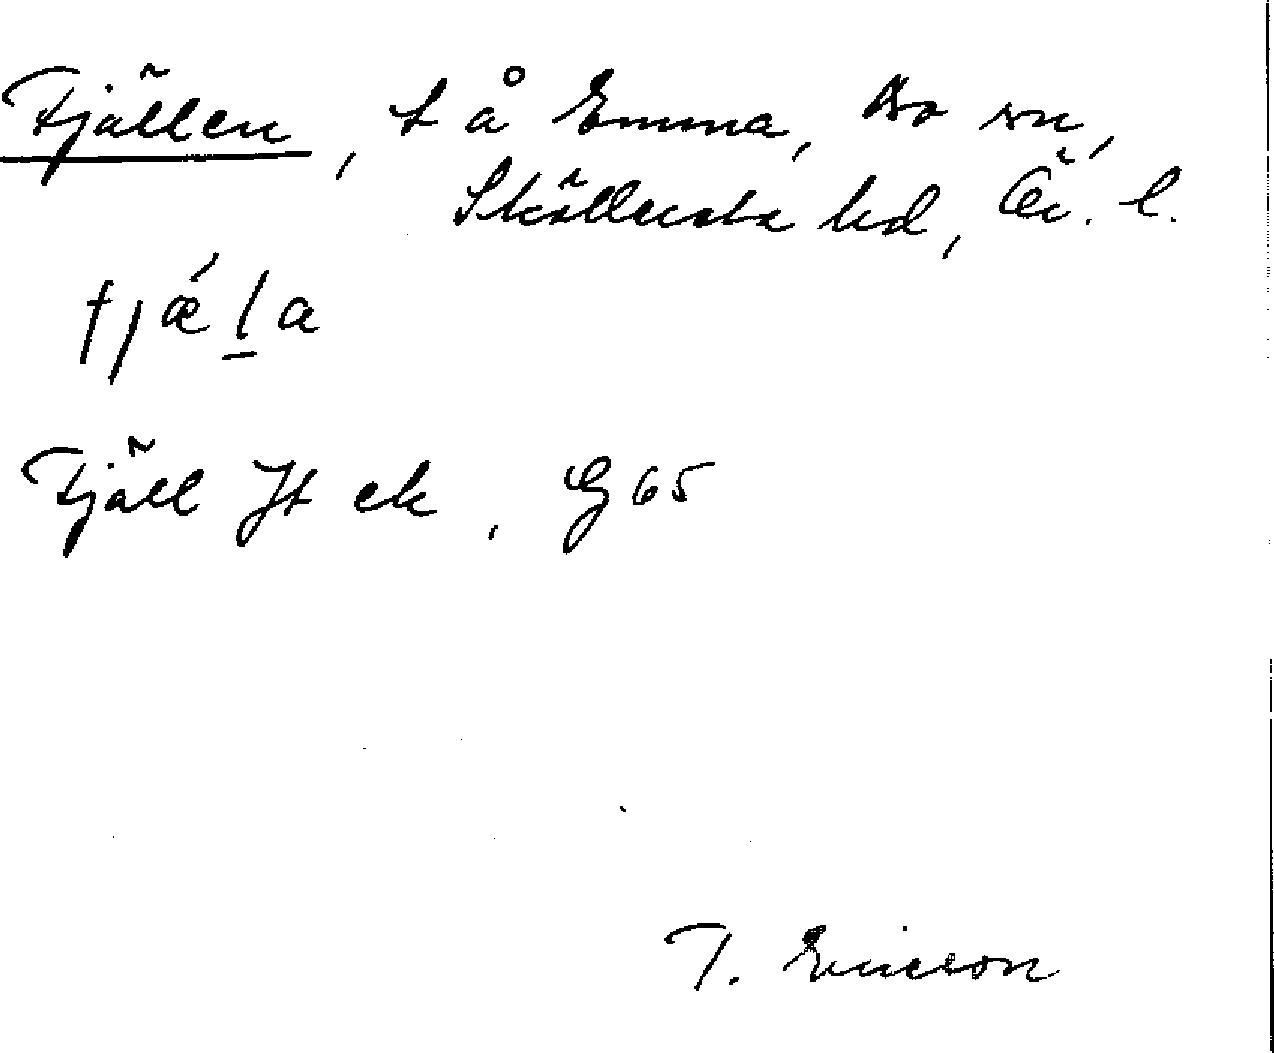 Fjällen, t å Emma, Ao sn,
Sköllersta hd, Ör. l.
fjæ´l̠a
Fjäll Jt ek, G 65
T. Ericson